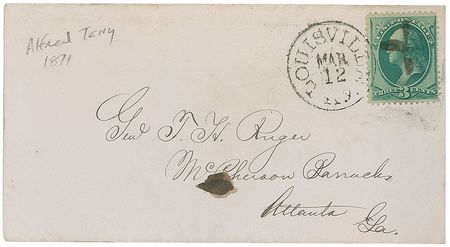 Alfred Terry
1871
LOUISVILLE
MAR
12
KY.
THREE 3 CENTS
Genl T. H. Ruger
McPherson Barracks
Atlanta
Ga.